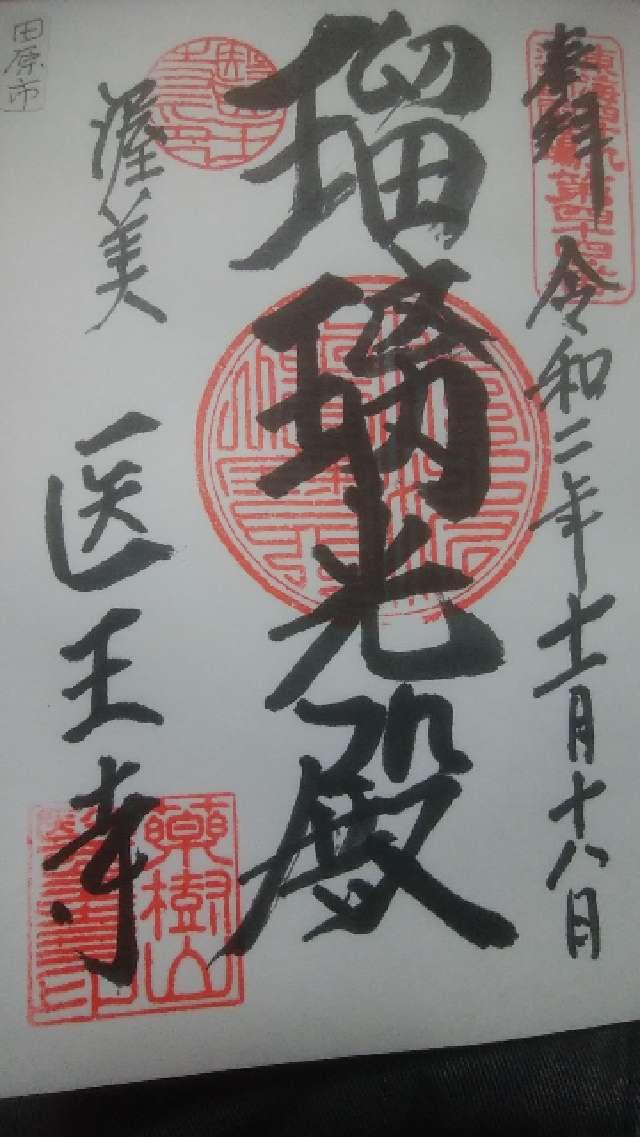 奉拝
令和二年十一月十八日
瑠璃光殿
渥美
医王寺
薬樹山
田原市